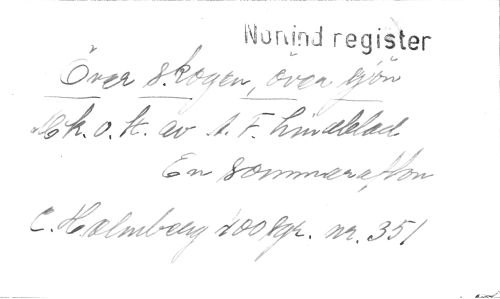 Norlind register
Över skogen, över sjön
sk. o. k. av A. F. Lindblad
En sommarafton
C. Holmberg 100 sgr. nr. 351